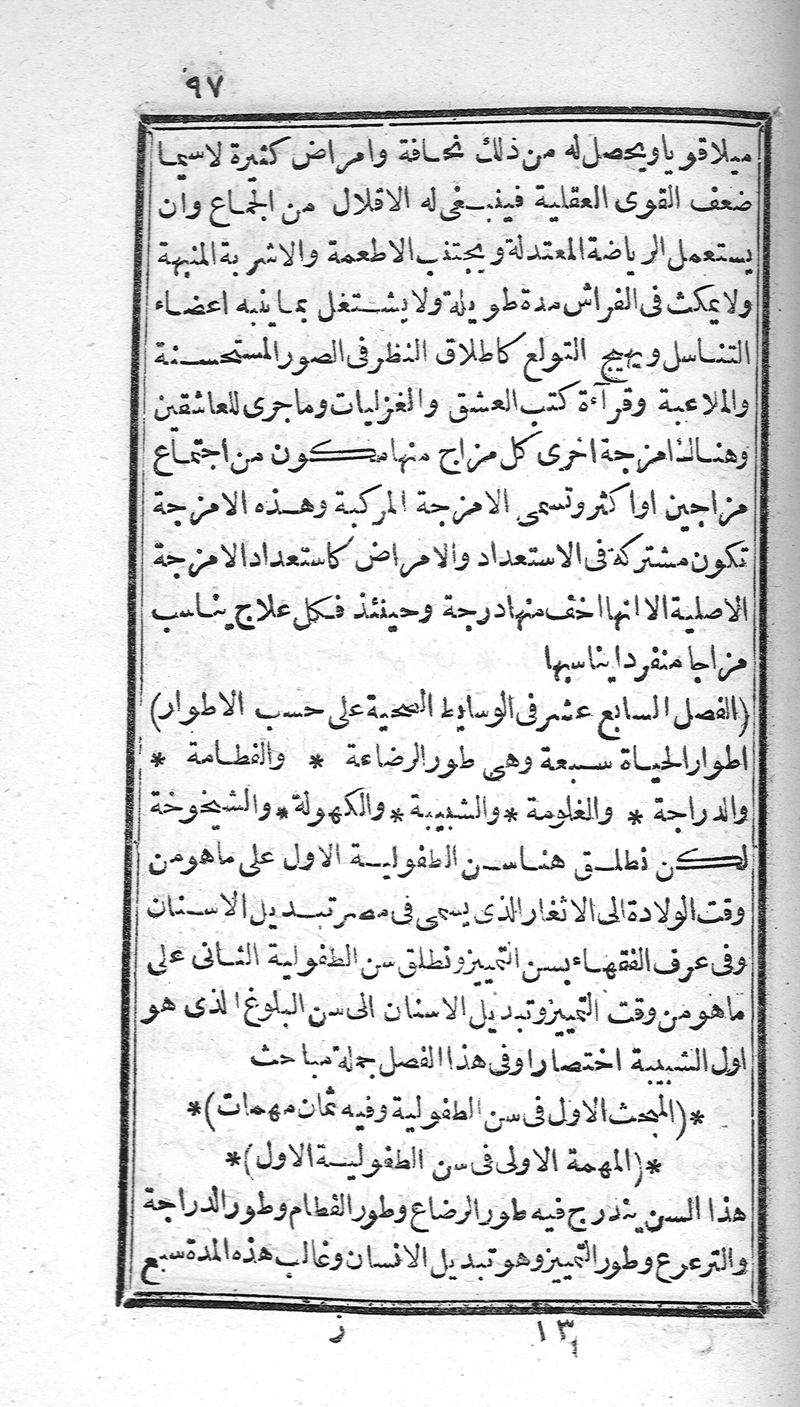 ٩٧
ميلا قويا ويحصل له من ذلك نحافة وامراض كثيرة لاسيما
ضعف القوى العقلية فينبغى له الاقلال من الجماع وان
يستعمل الرياضة المعتدلة ويجتنب الاطعمة والاشربة المنبهة
ولا يمكث فى الفراش مدة طويلة ولا يشتغل بما ينبه اعضاء
التناسل ويهيج التولع كاطلاق النظر فى الصور المستحسنة
والملاعبة وقرآءة كتب العشق والغزليات وما جرى للعاشقين
وهناك امزجة اخرى كل مزاج منها مكون من اجتماع
مزاجين او اكثر وتسمى الامزجة المركبة وهذه الامزجة
تكون مشتركة فى الاستعداد والامراض كاستعداد الامزجة
الاصلية الا انها اخف منها درجة وحينئذ فكل علاج يناسب
مزاجا منفردا يناسبها
(الفصل السابع عشر فى الوسايط الصحية على حسب الاطوار)
اطوار الحياة سبعة وهى طور الرضاعة * والفطامة *
والدراجة * والغلومة * والشبيبة * والكهولة * والشيخوخة
لكن نطلق هنا سن الطفولية الاول على ما هو من
وقت الولادة الى الاثغار الذى يسمى فى مصر تبديل الاسنان
وفى عرف الفقهاء بسن التمييز ونطلق سن الطفولية الثانى على
ما هو من وقت التمييز وتبديل الاسنان الى سن البلوغ الذى هو
اول الشبيبة اختصارا وفى هذا الفصل جملة مباحث
*(المبحث الاول فى سن الطفولية وفيه ثمان مهمات)*
*(المهمة الاولى فى سن الطفولية الاول)*
هذا السن يندرج فيه طور الرضاع وطور الفطام وطور الدراجة
والترعرع وطور التمييز وهو تبديل الانسان وغالب هذه المدة سبع
١٣ ز